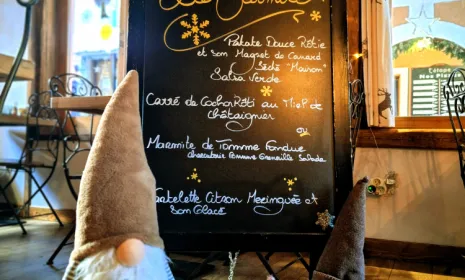 Patate Douce Rôtie
et son Magret de Canard
Séché "Maison"
Salsa Verde
Carré de Cochon Rôti au Miel de
châtaignier
ou
Marmite de Tomme Fondue
charcuterie Pomme Grenaille Salade
Tatelette Citron Meringuée et
son Glacé